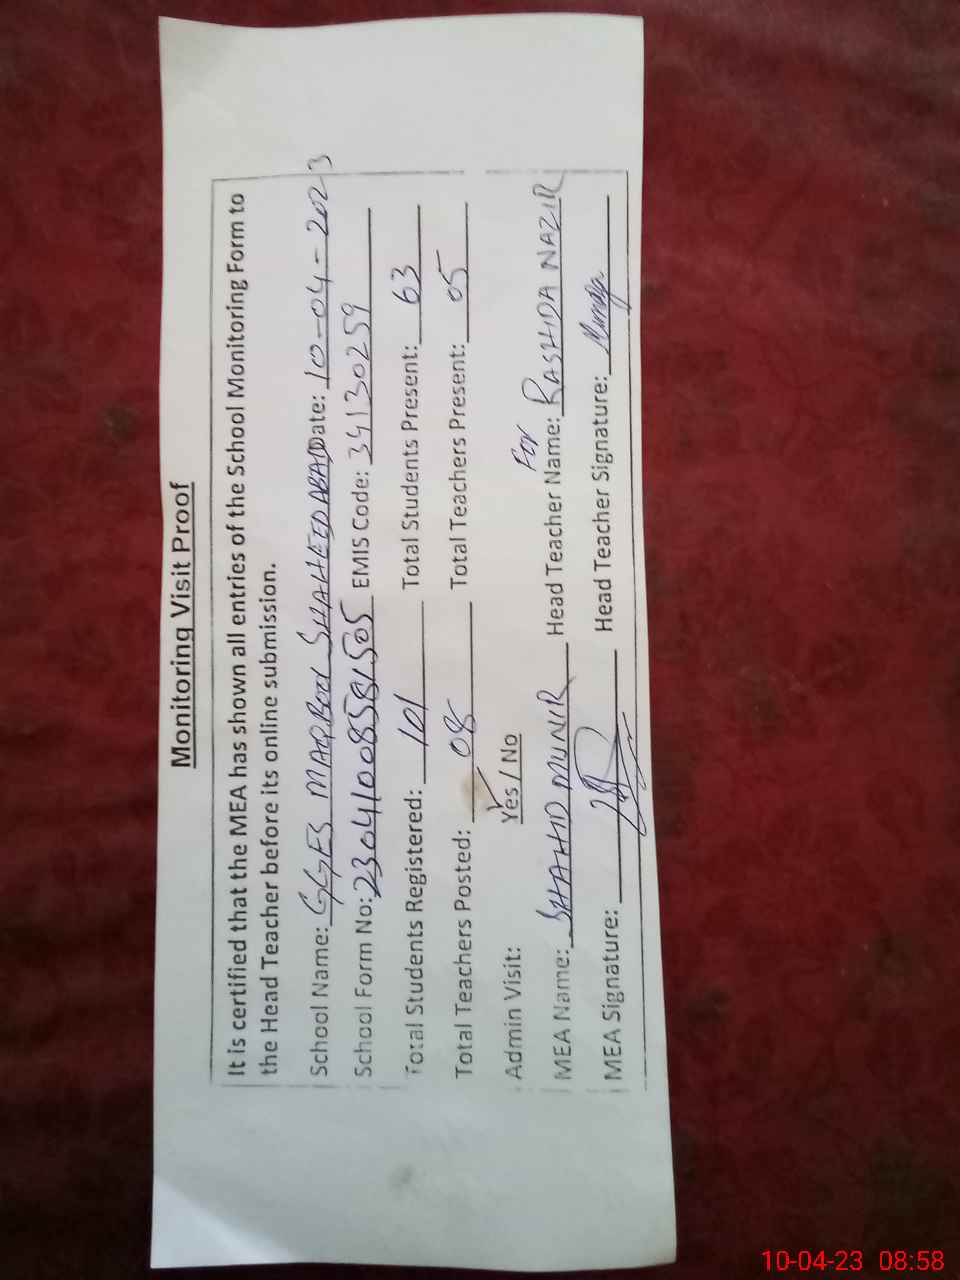 Monitoring Visit Proof
It is certified that the MEA has shown all entries of the School Monitoring Form to
the Head Teacher before its online submission.
School Name: GGES MAQBOOL SHAHEEDABAD Date: 10-04-2023
School Form No: 23041008581505 EMIS Code: 34130259
Total Students Registered: 101 Total Students Present: 63
Total Teachers Posted: 08 Total Teachers Present: 05
Admin Visit: Yes / No
For
MEA Name: SHAHID MUNIR Head Teacher Name: RASHIDA NAZIR
MEA Signature: Head Teacher Signature:
10-04-23 08:58